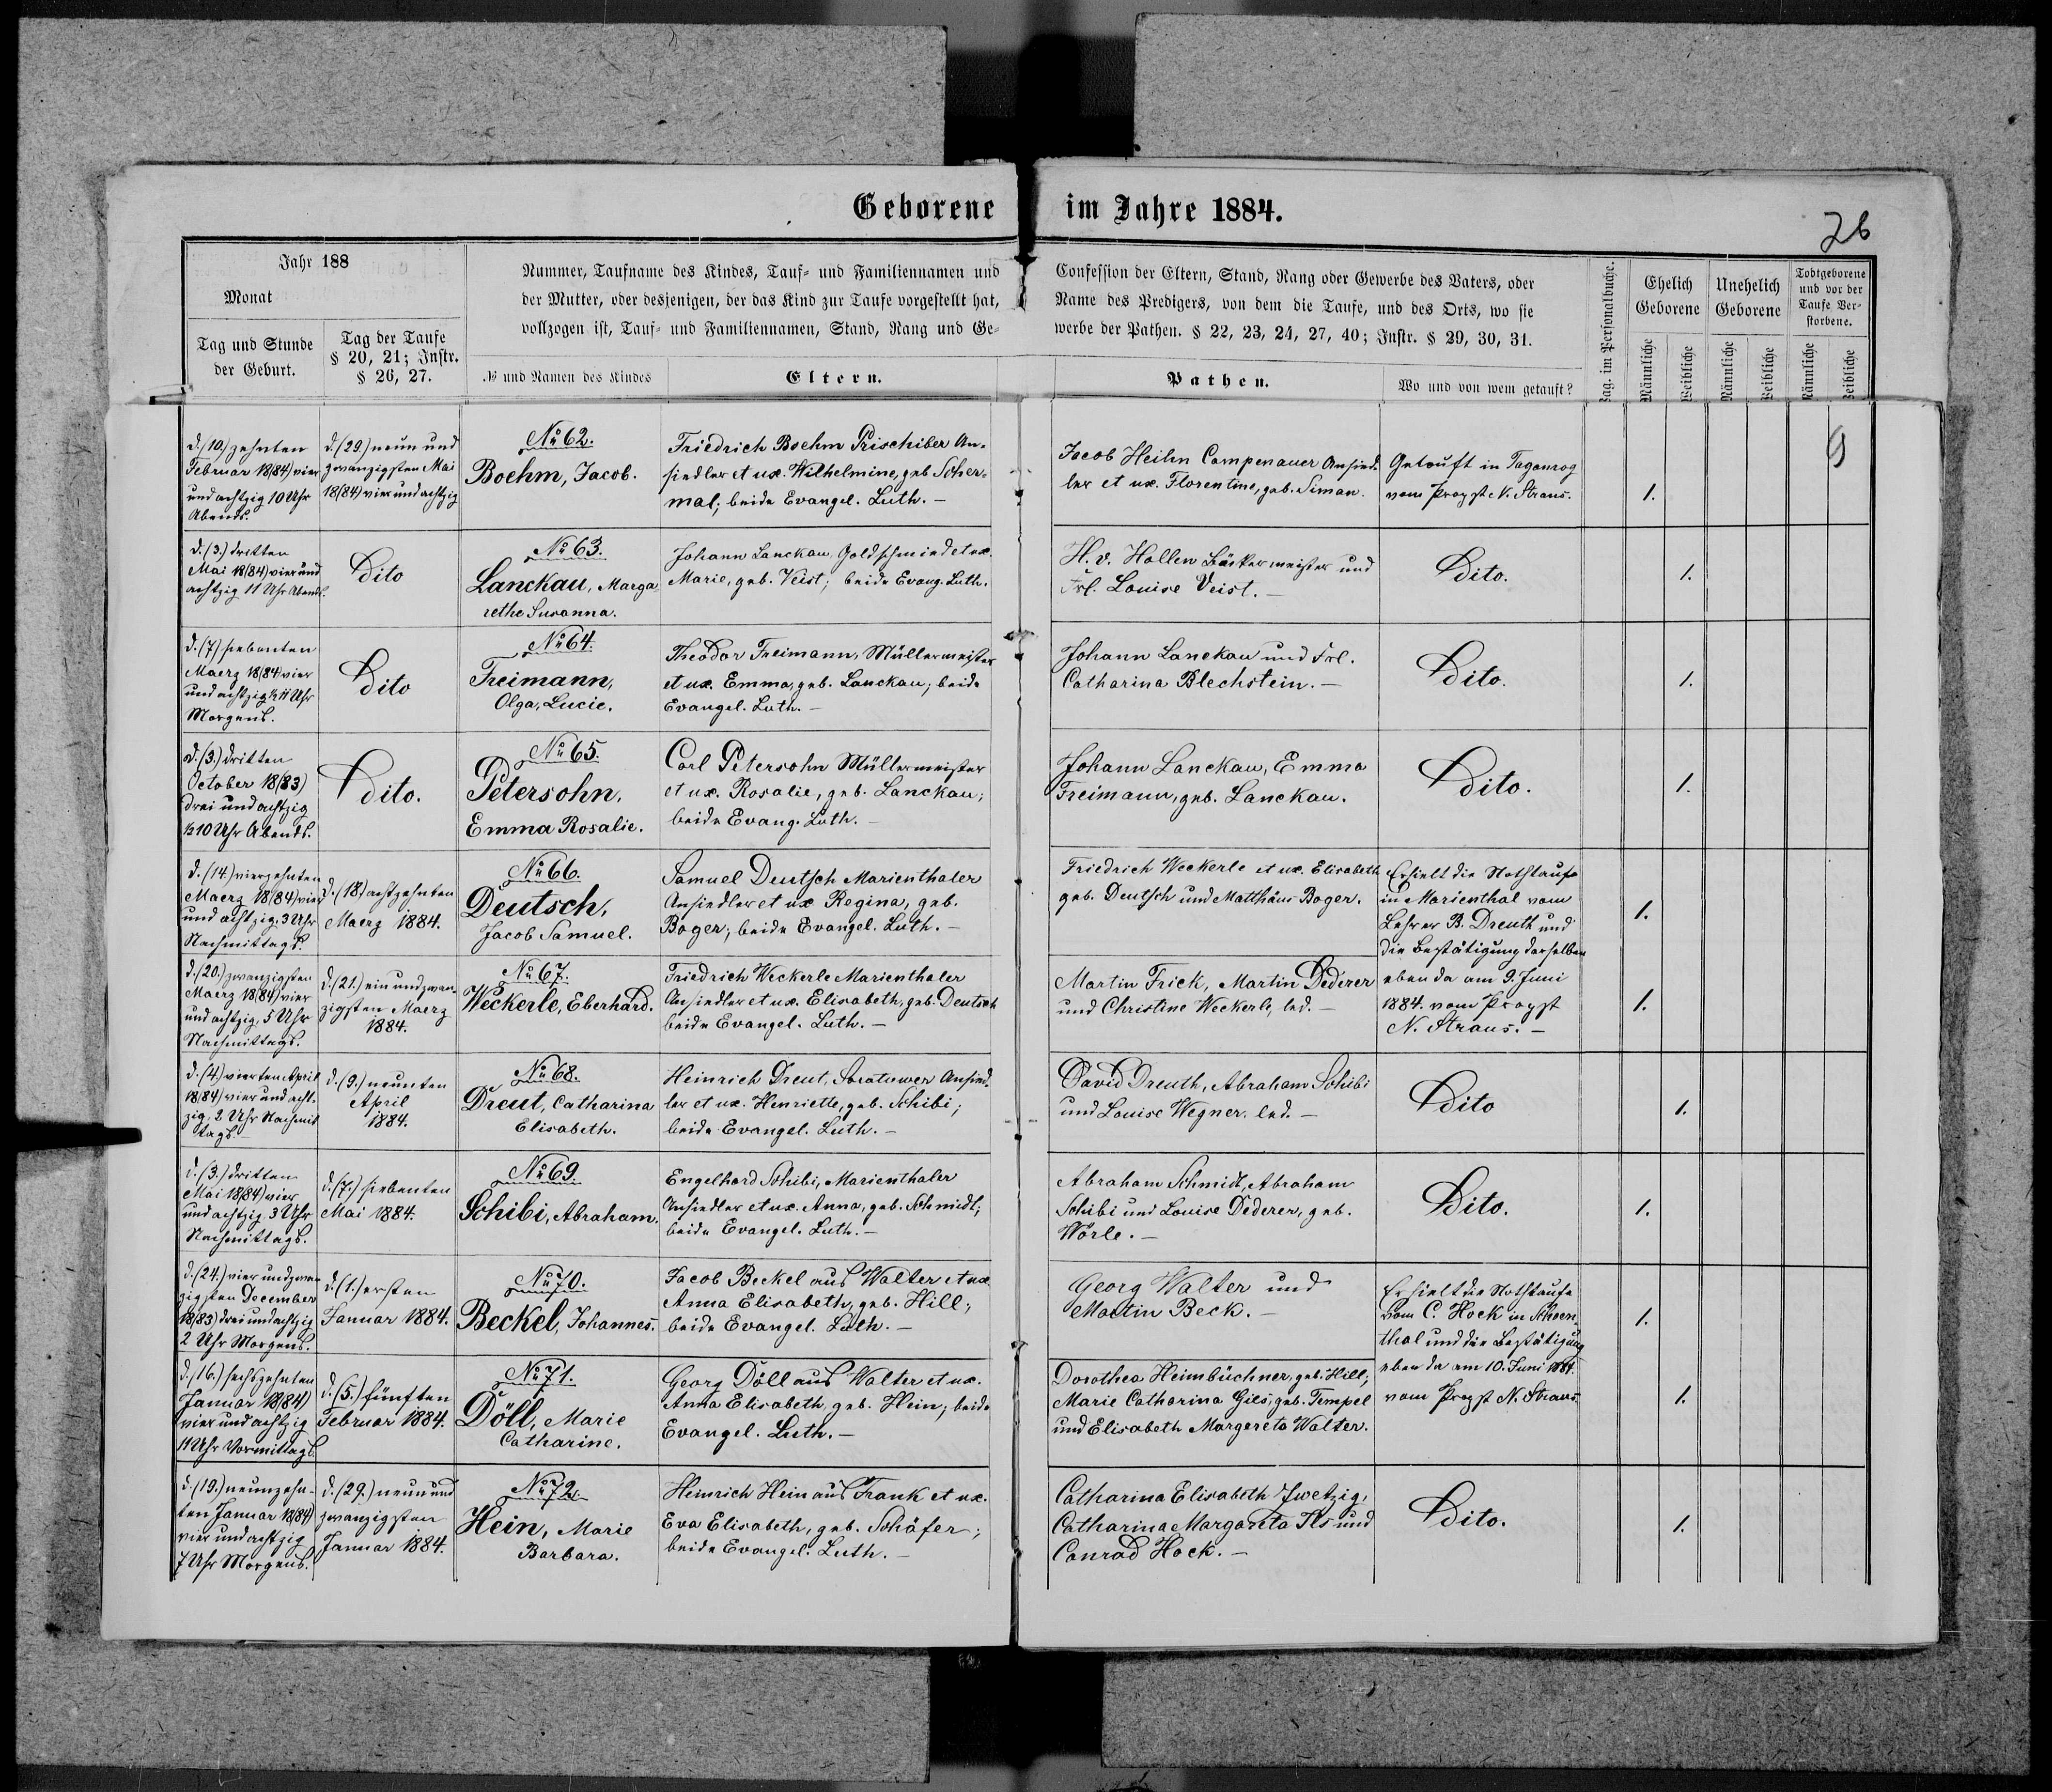 Geborene im Jahre 1884.
26
Jahr 188
Monat
Tag und Stunde
der Geburt.
Tag der Taufe
§ 20, 21; Instr.
§ 26, 27.
Nummer, Taufname des Kindes, Tauf= und Familiennamen und
der Mutter, oder desjenigen, der das Kind zur Taufe vorgestellt hat,
vollzogen ist, Tauf= und Familiennamen, Stand, Rang und Ge=
№ und Namen des Kindes
Eltern.
Confession der Eltern, Stand, Rang oder Gewerbe des Vaters, oder
Name des Predigers, von dem die Taufe, und des Orts, wo sie
werbe der Pathen. § 22, 23, 24, 27, 40; Instr. § 29, 30, 31.
Pathen.
Wo und von wem getauft?
Pag. im Personalbuche.
Ehelich
Geborene
Männliche
Weibliche
Unehelich
Geborene
Männliche
Weibliche
Todtgeborene
und vor der
Taufe Ver=
storbene.
Männliche
Weibliche
d. (10.) zehnten
Februar 18(84) vier
und achtzig 10 Uhr
Abends.
d. (29.) neun und
zwanzigsten Mai
18(84) vier und achtzig
№ 62.
Boehm, Jacob.
Friedrich Boehm Prischiber An-
siedler et ux. Wilhelmine, geb. Scher-
mal; beide Evangel. Luth. –
Jacob Heihn Campenauer Ansied-
ler et ux. Florentine, geb. Siman.
Getauft in Taganrog
vom Propst N. Straus.
1.
9
d. (3.) dritten
Mai 18(84) vier und
achtzig 11 Uhr Abends.
Dito
№ 63.
Lanckau, Marga
rethe Susanna.
Johann Lanckau, Goldschmied et ux.
Marie, geb. Veist; beide Evang. Luth.
H. v. Hollen Bäckermeister und
Frl. Louise Veist. –
Dito.
1.
d. (7) siebenten
Maerz 18(84) vier
und achtzig ½ 11 Uhr
Morgens.
Dito
№ 64.
Freimann,
Olga, Lucie.
Theodor Freimann, Müllermeister
et ux. Emma, geb. Lanckau; beide
Evangel. Luth. –
Johann Lanckau und Frl.
Catharina Blechstein. –
Dito.
1.
d. (3.) dritten
October 18(83)
drei und achtzig
½ 10 Uhr Abends.
Dito.
№ 65.
Petersohn,
Emma Rosalie.
Carl Petersohn Müllermeister
et ux. Rosalie, geb. Lanckau;
beide Evang. Luth. –
Johann Lanckau, Emma
Freimann, geb. Lanckau.
Dito.
1.
d. (14.) vierzehnten
Maerz 18(84) vier
und achtzig, 3 Uhr
Nachmittags.
d. (18) achtzehnten
Maerz 1884.
№ 66.
Deutsch,
Jacob Samuel.
Samuel Deutsch Marienthaler
Ansiedler et ux Regina, geb.
Boger; beide Evangel. Luth. –
Friedrich Weckerle et ux. Elisabeth
geb. Deutsch und Matthäus Boger.
Erhielt die Nothtaufe
in Marienthal vom
Lehrer B. Dreuth und
die Bestätigung derselben
eben da am 9. Juni
1884. vom Propst
N. Straus. –
1.
d. (20.) zwanzigsten
Maerz 18(84) vier
und achtzig, 5 Uhr
Nachmittags.
d. (21.) ein und zwan-
zigsten Maerz
1884.
№ 67.
Weckerle, Eberhard.
Friedrich Weckerle Marienthaler
Ansiedler et ux. Elisabeth, geb. Deutsch
beide Evangel. Luth. –
Martin Frick, Martin Dederer
und Christine Weckerle, led. –
1.
d. (4.) vierten April
18(84) vier und acht-
zig, 2 Uhr Nachmit
tags.
d. (9.) neunten
April
1884.
№ 68.
Dreut, Catharina
Elisabeth.
Heinrich Dreut, Ansied-
ler et ux. Henriette, geb. Schibi;
beide Evangel. Luth. –
David Dreuth, Abraham Schibi
und Louise Wegner. led. –
Dito
1.
d. (3.) dritten
Mai 18(84) vier
und achtzig 3 Uhr
Nachmittags.
d. (7.) siebenten
Mai 1884.
№ 69.
Schibi, Abraham.
Engelhard Schibi, Marienthaler
Ansiedler et ux. Anna, geb. Schmidt;
beide Evangel. Luth. –
Abraham Schmidt, Abraham
Schibi und Louise Dederer, geb.
Wörle. –
Dito.
1.
d. (24.) vier und zwan
zigsten December
18(83) drei und achtzig
2 Uhr Morgens.
d. (1.) ersten
Januar 1884.
№ 70.
Beckel, Johannes.
Jacob Beckel aus Walter et ux.
Anna Elisabeth, geb. Hill;
beide Evangel. Luth. –
Georg Walter und
Martin Beck. –
Erhielt die Nothtaufe
vom C. Hock in Schoen-
thal und die Bestätigung
eben da am 10. Juni 1884.
vom Propst N. Straus.
1.
d. (16.) sechszehnten
Januar 18(84)
vier und achtzig
11 Uhr Vormittags.
d. (5.) fünften
Februar 1884.
№ 71.
Döll, Marie
Catharine.
Georg Döll aus Walter et ux.
Anna Elisabeth, geb. Hein; beide
Evangel. Luth. –
Dorothea Heimbüchner, geb. Hill;
Marie Catharina Gies, geb. Tempel
und Elisabeth Margareta Walter.
1.
d. (19.) neunzehn-
ten Januar 18(84)
vier und achtzig
7 Uhr Morgens.
d. (29.) neun und
zwanzigsten
Januar 1884.
№ 72.
Hein, Marie
Barbara.
Heinrich Hein aus Frank et ux.
Eva Elisabeth, geb. Schäfer;
beide Evangel. Luth. –
Catharina Elisabeth Zwetzig,
Catharina Margareta Ils und
Conrad Hock. –
Dito.
1.